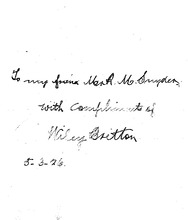 To my friend Mr. A. M. Snyder,
with compliments of
Wiley Britton
5-3-26.